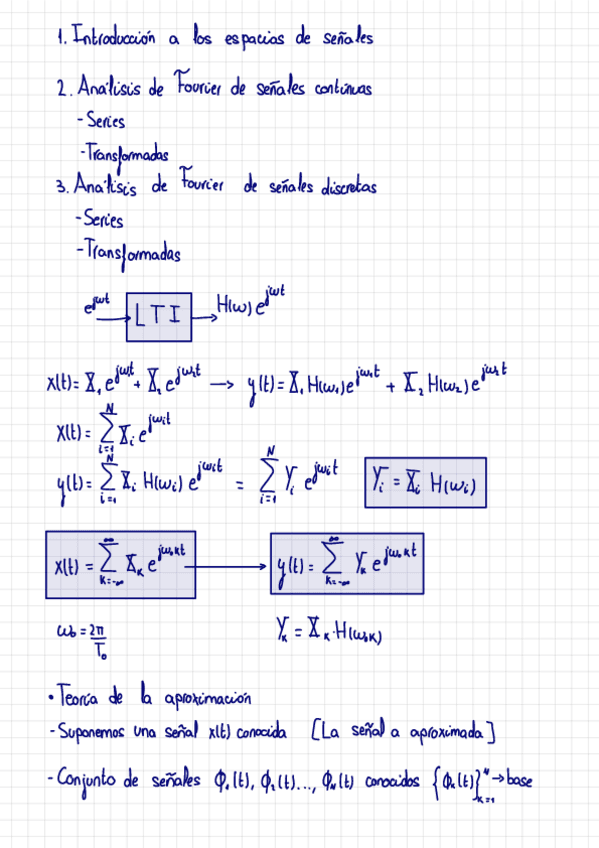 1. Introducción a los espacios de señales
2. Análisis de Fourier de señales continuas
- Series
- Transformadas
3. Análisis de Fourier de señales discretas
- Series
- Transformadas
e^{jωt} → LTI → H(ω) e^{jωt}
x(t) = X₁ e^{jω₁t} + X₂ e^{jω₂t} → y(t) = X₁ H(ω₁) e^{jω₁t} + X₂ H(ω₂) e^{jω₂t}
x(t) = ∑_{i=1}^{N} X_i e^{jω_i t}
y(t) = ∑_{i=1}^{N} X_i H(ω_i) e^{jω_i t} = ∑_{i=1}^{N} Y_i e^{jω_i t} Y_i = X_i H(ω_i)
x(t) = ∑_{k=-∞}^{∞} X_k e^{jω₀kt} → y(t) = ∑_{k=-∞}^{∞} Y_k e^{jω₀kt}
ω₀ = 2π/T₀ Y_k = X_k · H(ω₀k)
• Teoría de la aproximación
- Suponemos una señal x(t) conocida [La señal a aproximada]
- Conjunto de señales ϕ₁(t), ϕ₂(t)..., ϕ_N(t) conocidos {ϕ_k(t)}_{k=1}^{N} → base